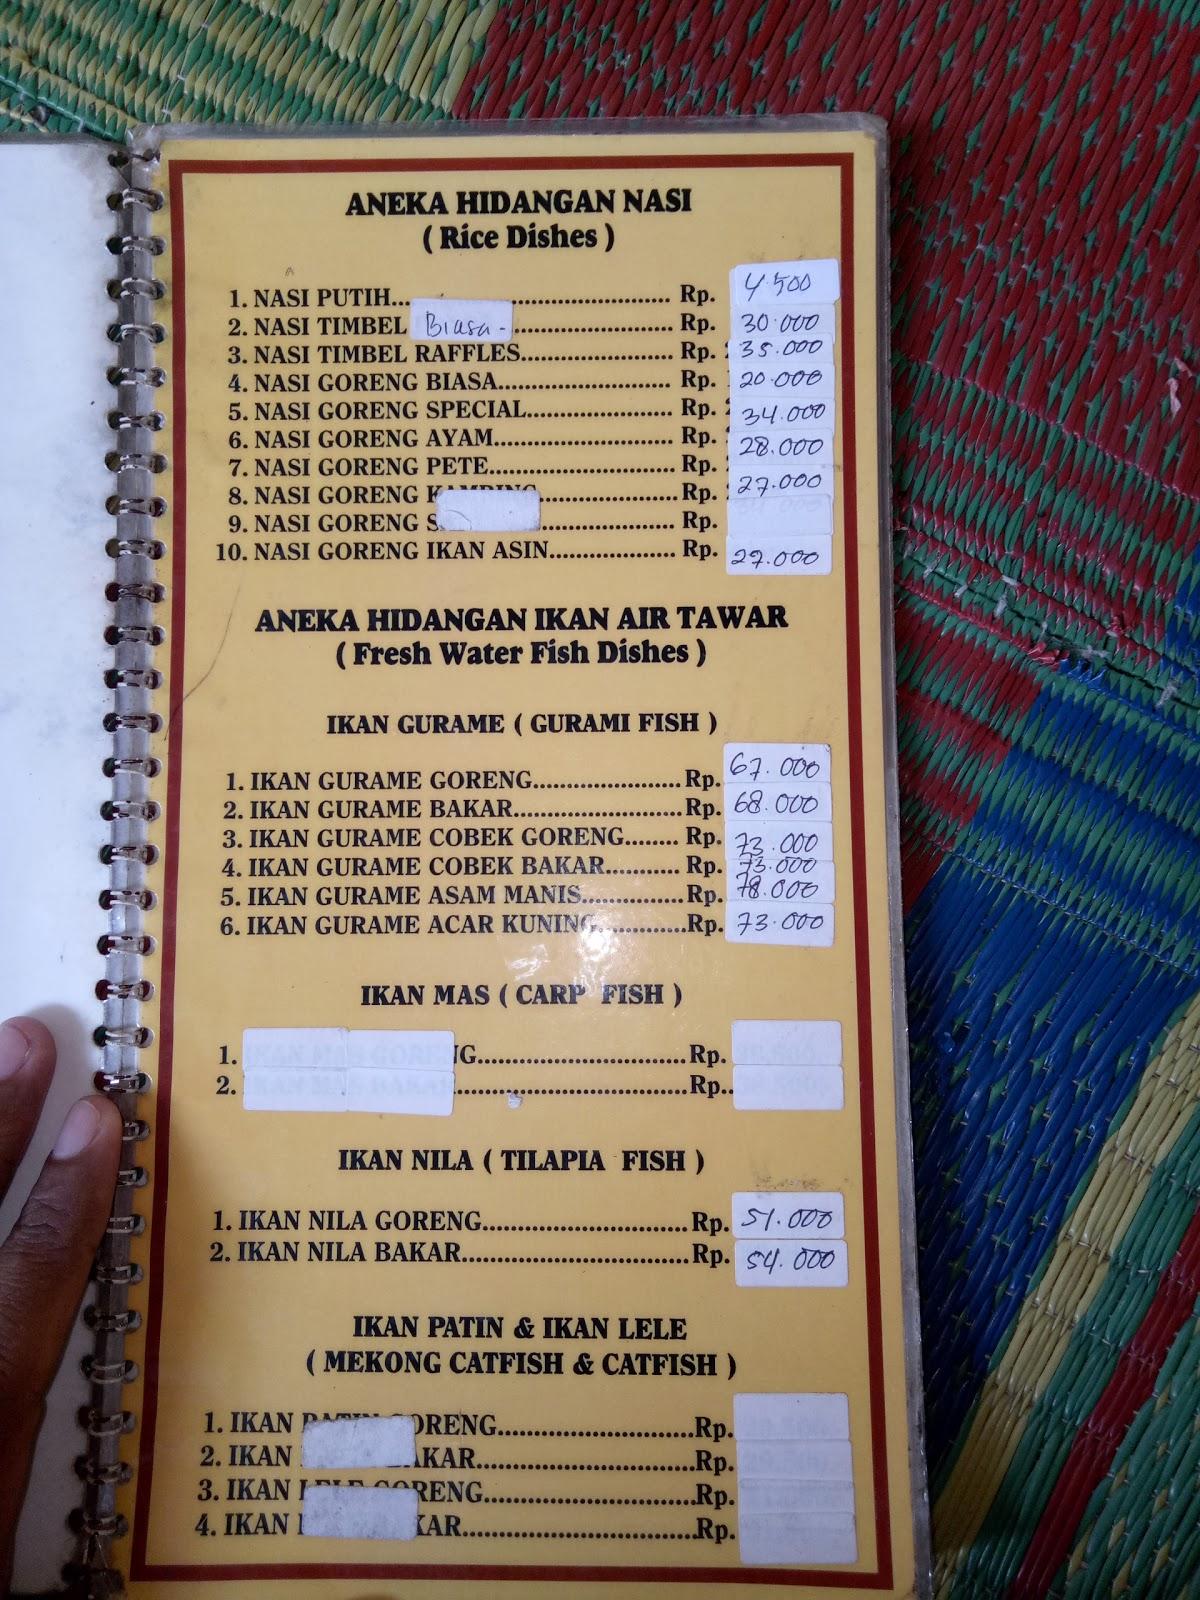 ANEKA HIDANGAN NASI
( Rice Dishes )
1. NASI PUTIH........................................ Rp. 4.500
2. NASI TIMBEL Biasa-........................ Rp. 30.000
3. NASI TIMBEL RAFFLES...................... Rp. 35.000
4. NASI GORENG BIASA......................... Rp. 20.000
5. NASI GORENG SPECIAL..................... Rp. 34.000
6. NASI GORENG AYAM......................... Rp. 28.000
7. NASI GORENG PETE.......................... Rp. 27.000
8. NASI GORENG KAMBING.................... Rp.
9. NASI GORENG S................... Rp.
10. NASI GORENG IKAN ASIN.................. Rp. 27.000
ANEKA HIDANGAN IKAN AIR TAWAR
( Fresh Water Fish Dishes )
IKAN GURAME ( GURAMI FISH )
1. IKAN GURAME GORENG..................... Rp. 67.000
2. IKAN GURAME BAKAR........................ Rp. 68.000
3. IKAN GURAME COBEK GORENG........ Rp. 73.000
4. IKAN GURAME COBEK BAKAR........... Rp. 73.000
5. IKAN GURAME ASAM MANIS...............Rp. 78.000
6. IKAN GURAME ACAR KUNING.............Rp. 73.000
IKAN MAS ( CARP FISH )
1. IKAN MAS GORENG..............................Rp.
2. IKAN MAS BAKAR.................................Rp..
IKAN NILA ( TILAPIA FISH )
1. IKAN NILA GORENG.............................Rp. 51.000
2. IKAN NILA BAKAR................................Rp. 54.000
IKAN PATIN & IKAN LELE
( MEKONG CATFISH & CATFISH )
1. IKAN PATIN GORENG............................Rp.
2. IKAN AKAR...............................Rp.
3. IKAN LELE GORENG..............................Rp.
4. IKAN KAR.................................Rp.